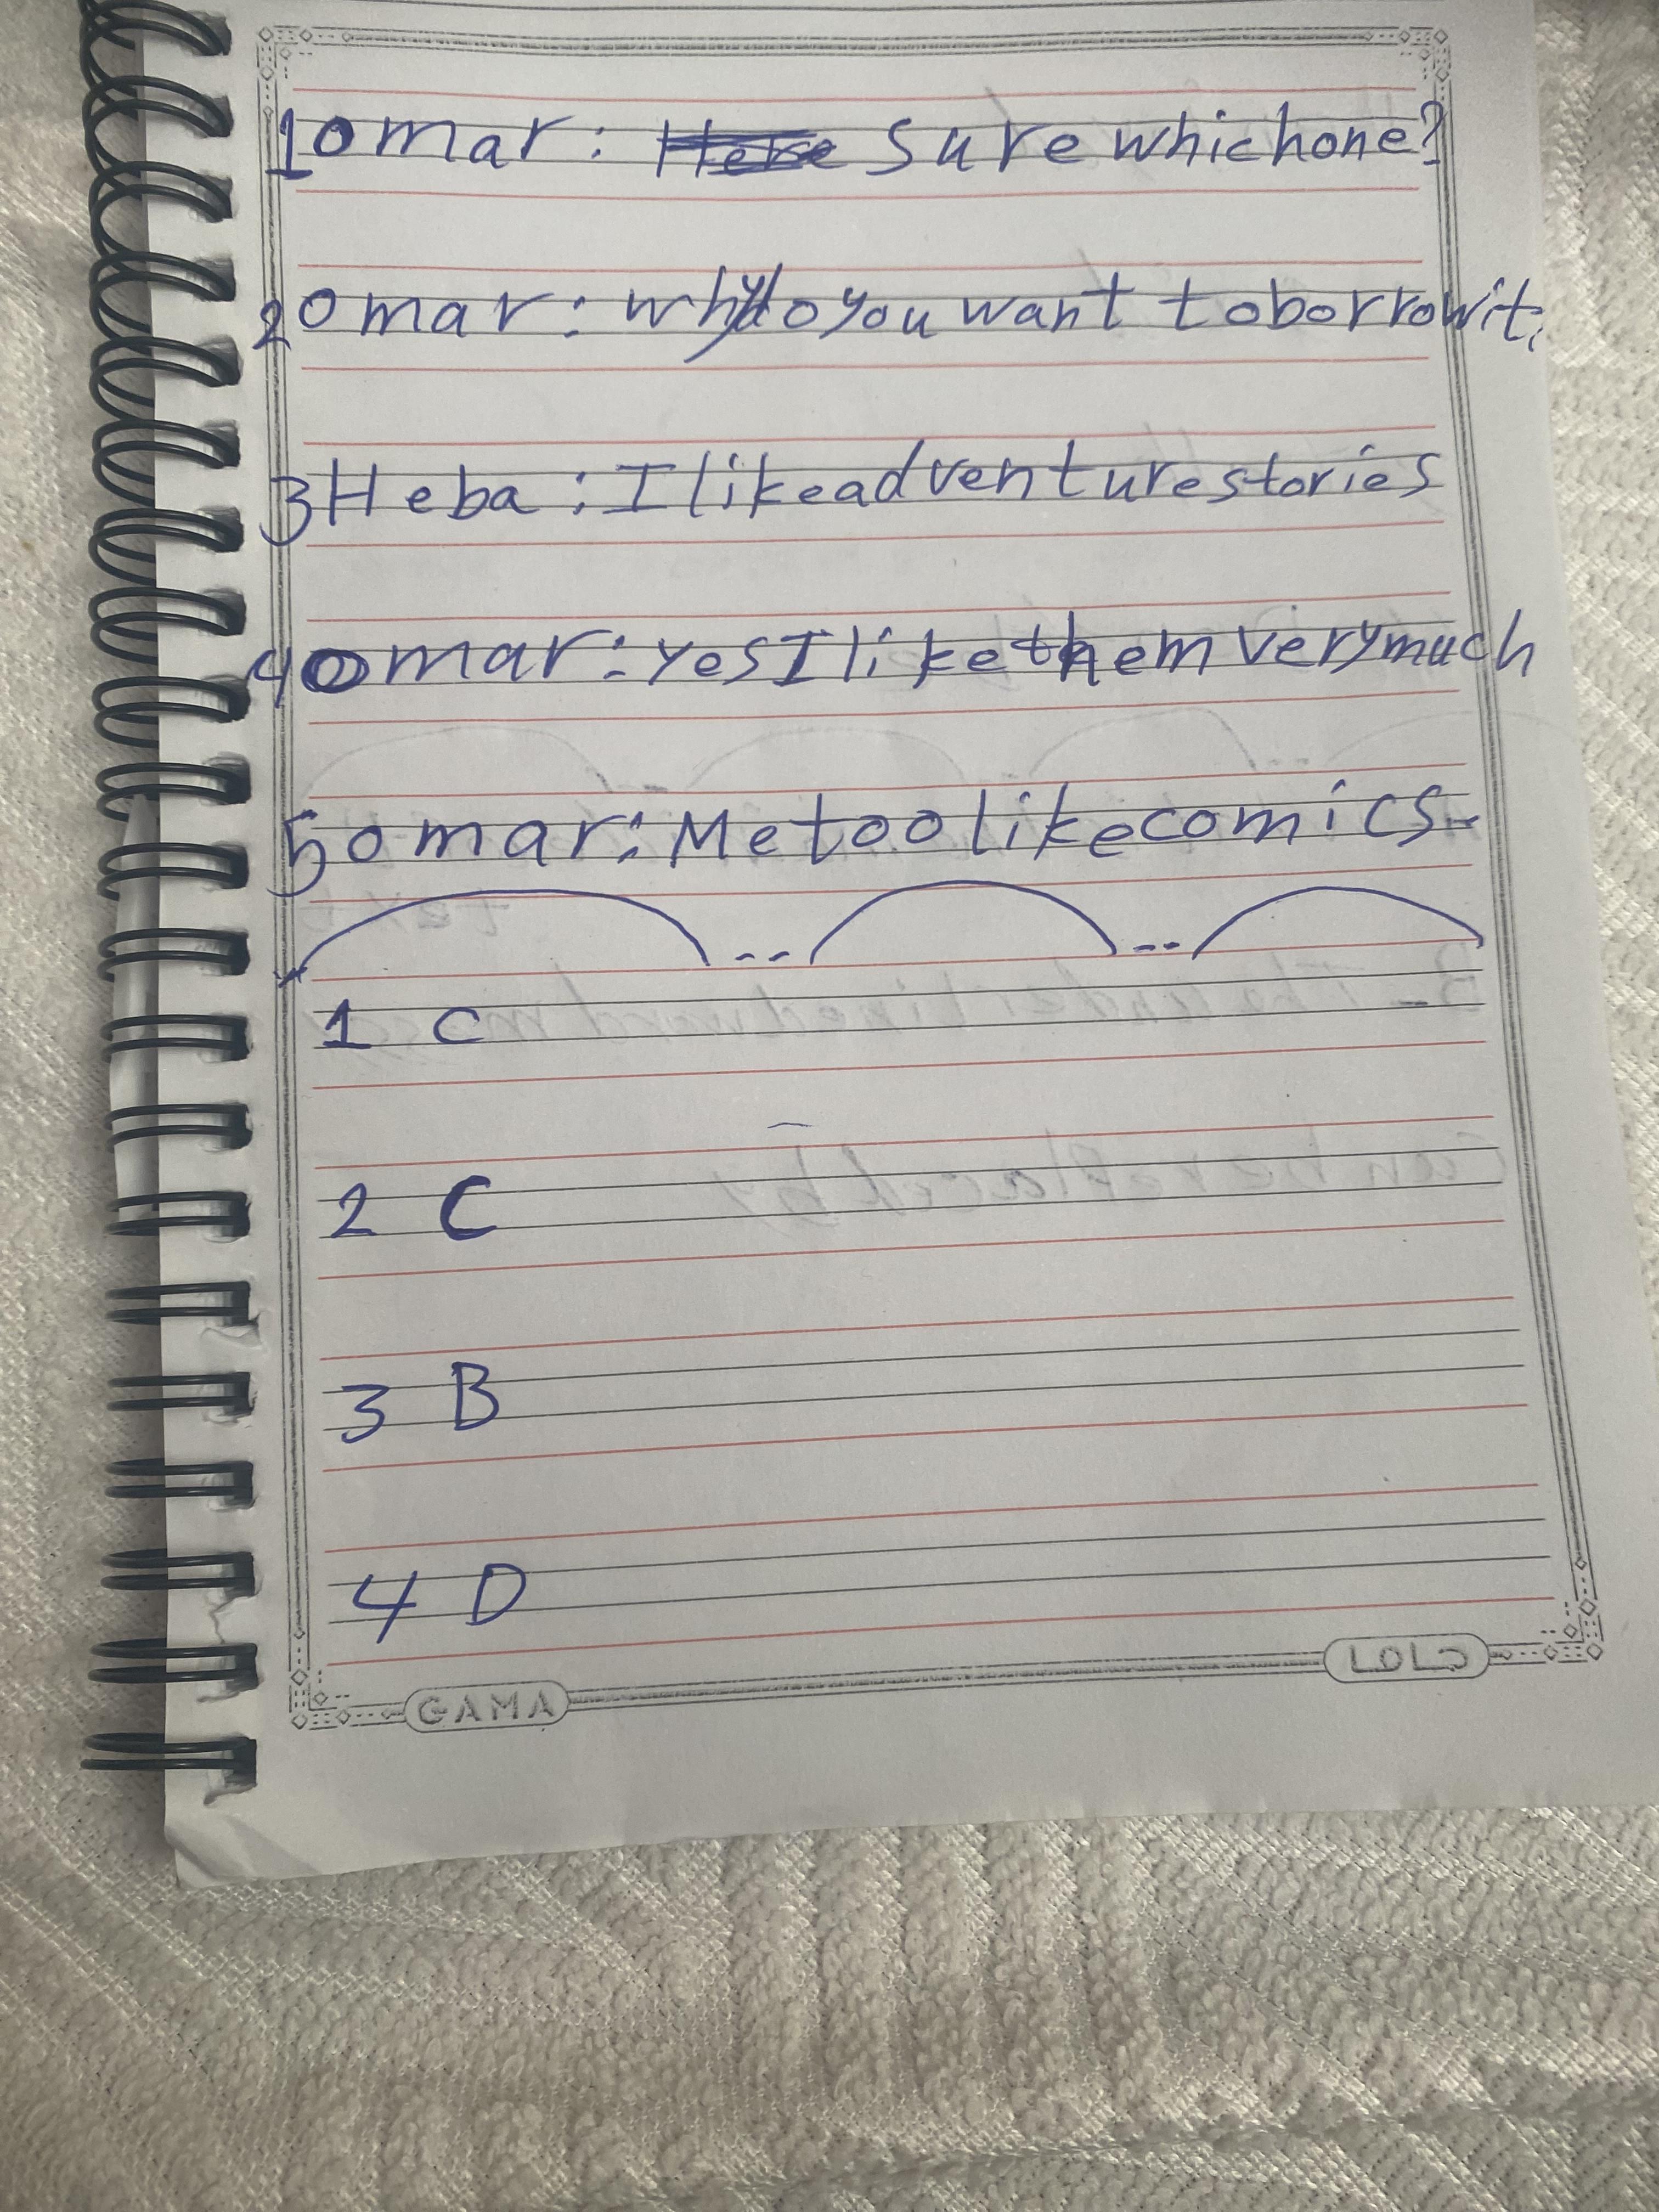 1 Omar: Sure which one?
2 Omar: why do you want to borrow it.
3 Heba: I like adventure stories
4 Omar: yes I like them very much
5 Omar: Me too like comics.
1 C
2 C
3 B
4 D
GAMA LOLO